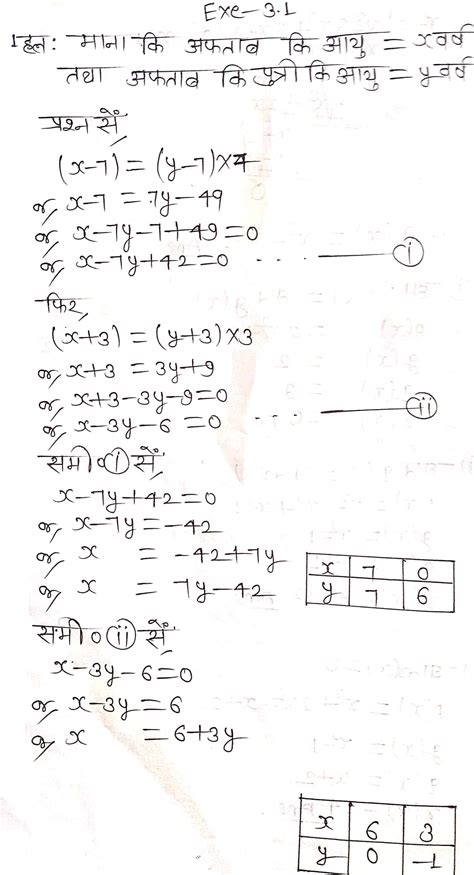 Exe-3.1
1 हल: माना कि अफताब कि आयु = x वर्ष
तथा अफताब कि पुत्री कि आयु = y वर्ष
प्रश्न सें,
(x-7) = (y-7)×7
or, x-7 = 7y-49
or, x-7y-7+49=0
or, x-7y+42=0 ... (i)
फिर,
(x+3) = (y+3)×3
or, x+3 = 3y+9
or, x+3-3y-9=0
or, x-3y-6=0 ... (ii)
समी० (i) सें,
x-7y+42=0
or, x-7y=-42
or, x = -42+7y
or, x = 7y-42
x 7 0
y 7 6
समी० (ii) सें,
x-3y-6=0
or, x-3y=6
or, x = 6+3y
x 6 3
y 0 -1